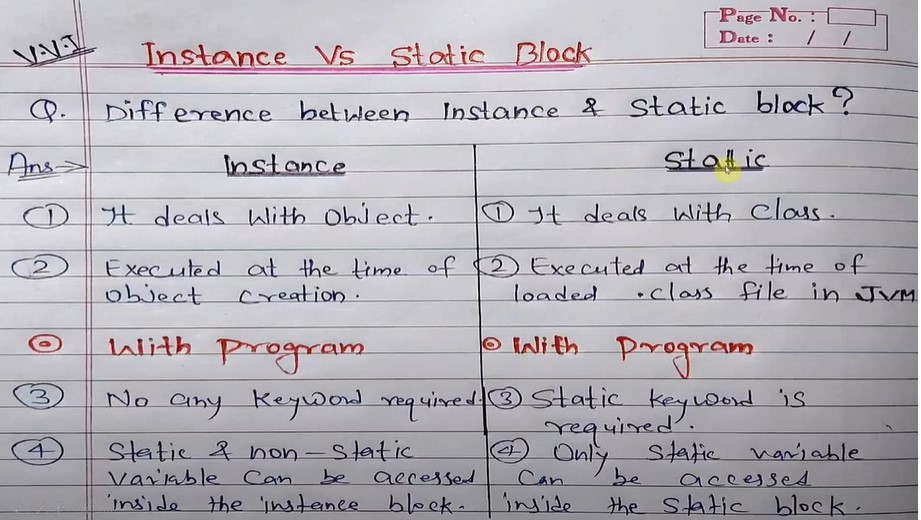 Page No. :
Date : / /
V.V.I
Instance Vs Static Block
Q. Difference between Instance & Static block?
Ans→
Instance
Static
① It deals With Object.
① It deals With Class.
② Executed at the time of
Object Creation.
② Executed at the time of
loaded .class file in JVM
With Program
With Program
③ No any Keyword required.
③ Static keyword is
required.
④ Static & non-static
Variable Can be accessed
inside the instance block.
④ Only Static variable
Can be accessed
inside the Static block.